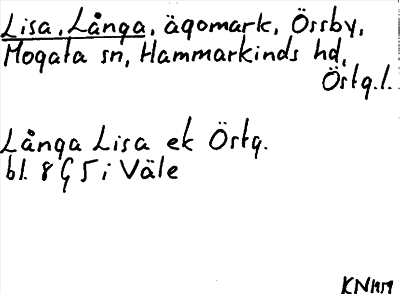 Lisa, Långa, ägomark, Örsby,
Mogata sn, Hammarkinds hd,
Östg.l.
Långa Lisa ek Östg.
bl. 8 G 5 i Väle
KN 1959